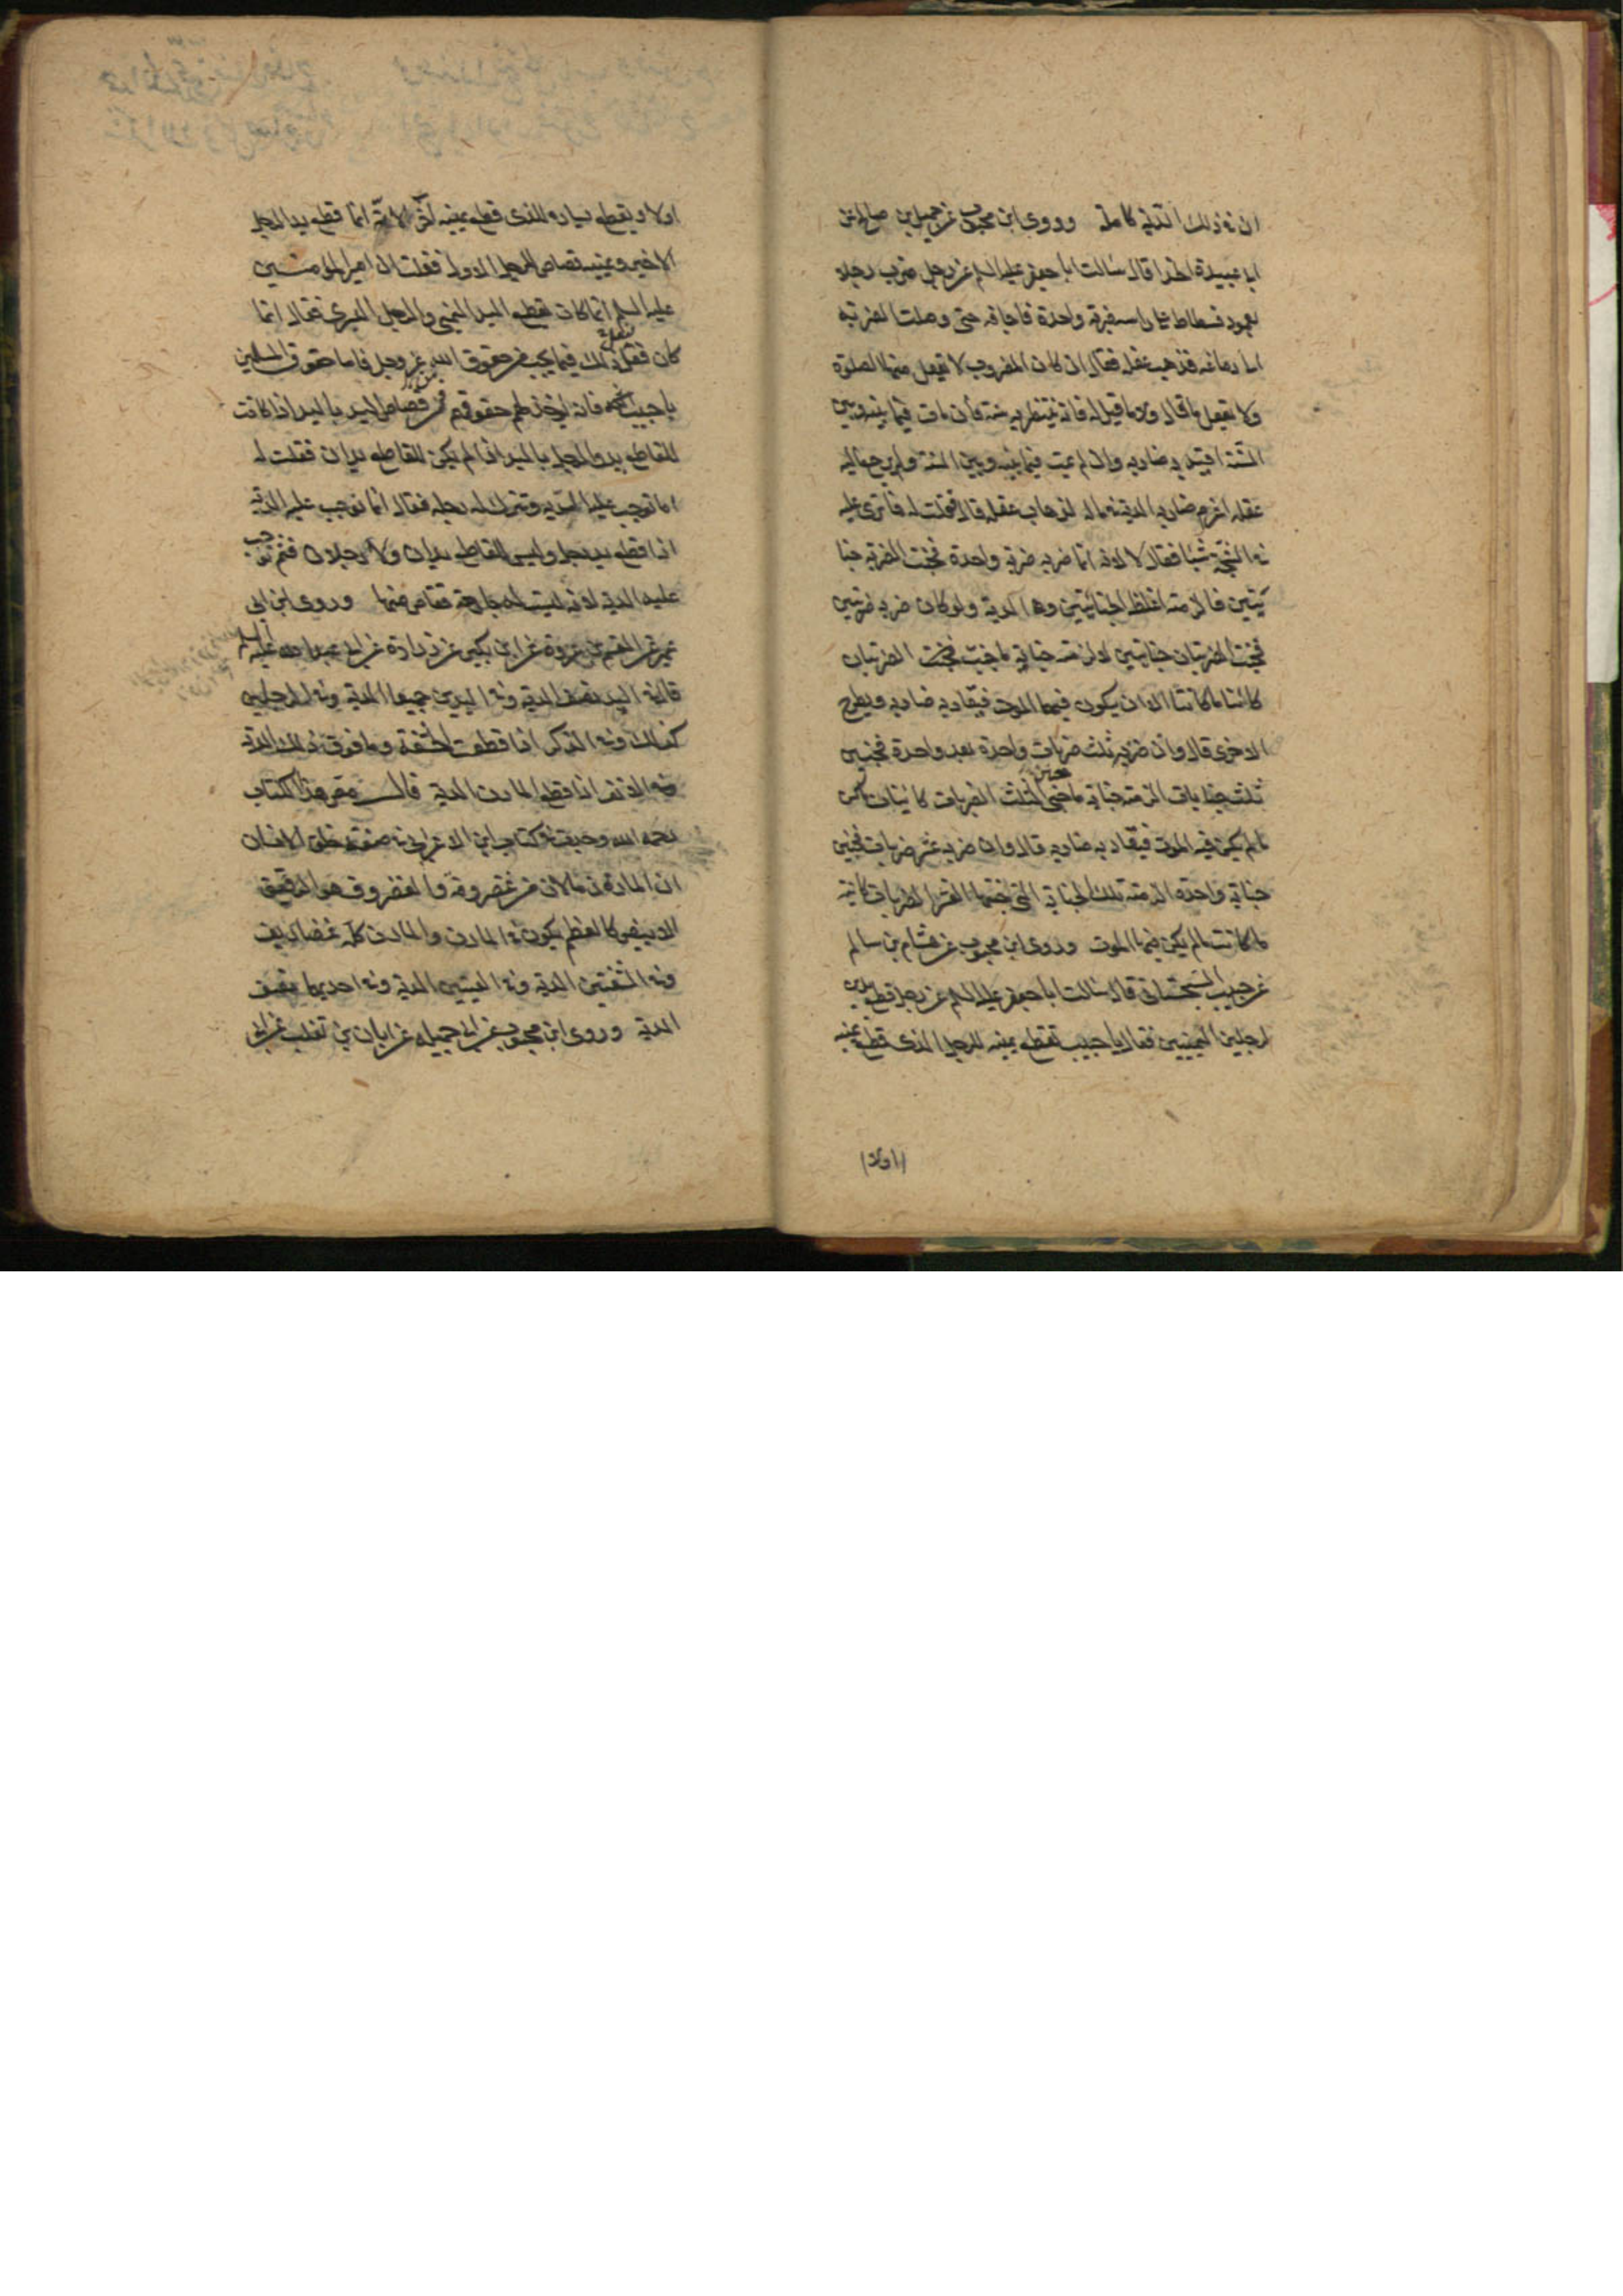 ان في ذلك الدية كاملة وروى ابن محبوب عن جميل بن صالح عن
ابي عبيدة الحذا قال سالت ابا جعفر عليه السلم عن رجل ضرب رجلا
بعمود فسطاط على راسه ضربة واحدة فاجافه حتى وصلت الضربة
الى دماغه فذهب عقله فقال ان كان المضروب لا يعقل منها الصلوة
ولا يعقل ما قال ولا ما قيل له فانه ينتظر به سنة فان مات فيما بينه وبين
السنة اقيد به ضاربه وان لم يمت فيما بينه وبين السنة ولم يرجع اليه
عقله اغرم ضاربه الدية في ماله لذهاب عقله قال فقلت له فما ترى عليه
في الشجة شيئا فقال لا لانه انما ضربه ضربة واحدة فجنت الضربة جنا
يتين فالزمته اغلظ الجنايتين وهي الدية ولو كان ضربه ضربتين
فجنت الضربتان جنايتين لالزمته جناية ما جنت الضربتان
كائنا ما كانتا الا ان يكون فيهما الموت فيقاد به ضاربه ويطرح
الاخرى قال وان ضربه ثلث ضربات واحدة بعد واحدة فجنين
ثلث جنايات الزمته جناية ما جنين الثلث الضربات كائنات ما كن
ما لم يكن فيه الموت فيقاد به ضاربه قال وان ضربه عشر ضربات فجنين
جناية واحدة الزمته تلك الجناية التي جنتها العشر الضربات كائنة
ما كانت ما لم يكن فيها الموت وروى ابن محبوب عن هشام بن سالم
عن حبيب السجستاني قال سالت ابا جعفر عليه السلم عن رجل قطع يدين
لرجلين اليمينين فقال يا حبيب تقطع يمينه للرجل الذي قطع يمينه
اولا
اولا ويقطع يساره للذي قطع يمينه اخرا لانه انما قطع يد الرجل
الاخير ويمينه قصاص للرجل الاول فقلت ان امير المؤمنين
عليه السلم انما كان يقطع اليد اليمنى والرجل اليسرى فقال انما
كان يفعل ذلك فيما يجب من حقوق الله عز وجل فاما حقوق المسلمين
يا حبيب فانه يؤخذ لهم حقوقهم من قصاص اليد باليد اذا كانت
للقاطع يد والرجل باليد اذا لم يكن للقاطع يدان فقلت له
اما توجب عليه الدية وتترك له رجله فقال انما توجب عليه الدية
اذا قطع يد رجل وليس للقاطع يدان ولا رجلان فثم توجب
عليه الدية لانه ليست له جارحة تقاص منها وروى ابن ابي
عمير عن القسم بن عروة عن ابن بكير عن زرارة عن ابي عبد الله عليه السلم
قال في اليد نصف الدية وفي اليدين جميعا الدية وفي الرجلين
كذلك وفي الذكر اذا قطعت الحشفة وما فوق ذلك الدية
وفي الانف اذا قطع المارن الدية قال مصنف هذا الكتاب
رحمه الله وجدت في كتاب ابن الاعرابي في صفة خلق الانسان
ان المارن ما لان من غضروفه والغضروف هو الرقيق
الابيض كالعظم يكون في المارن والمارن كله غضاريف
وفي الشفتين الدية وفي العينين الدية وفي احديهما نصف
الدية وروى ابن محبوب عن ابي جميلة عن ابان بن تغلب عن ابي